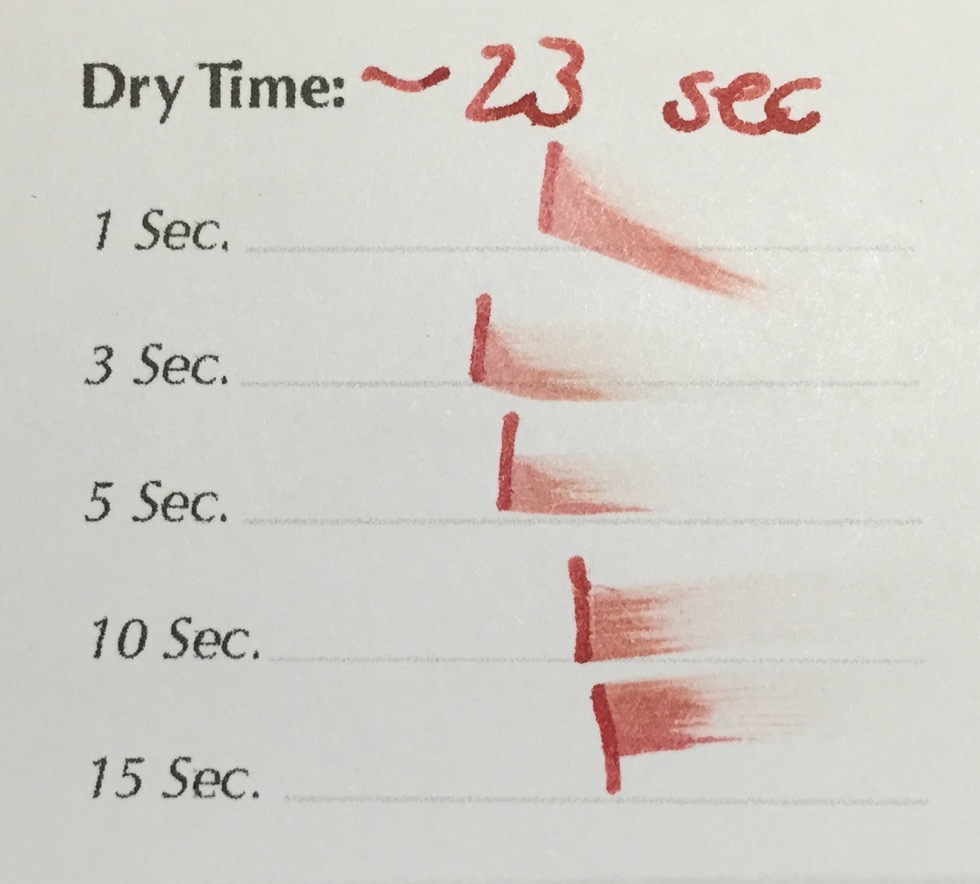 Dry Time: ~23 sec
1 Sec.
3 Sec.
5 Sec.
10 Sec.
15 Sec.